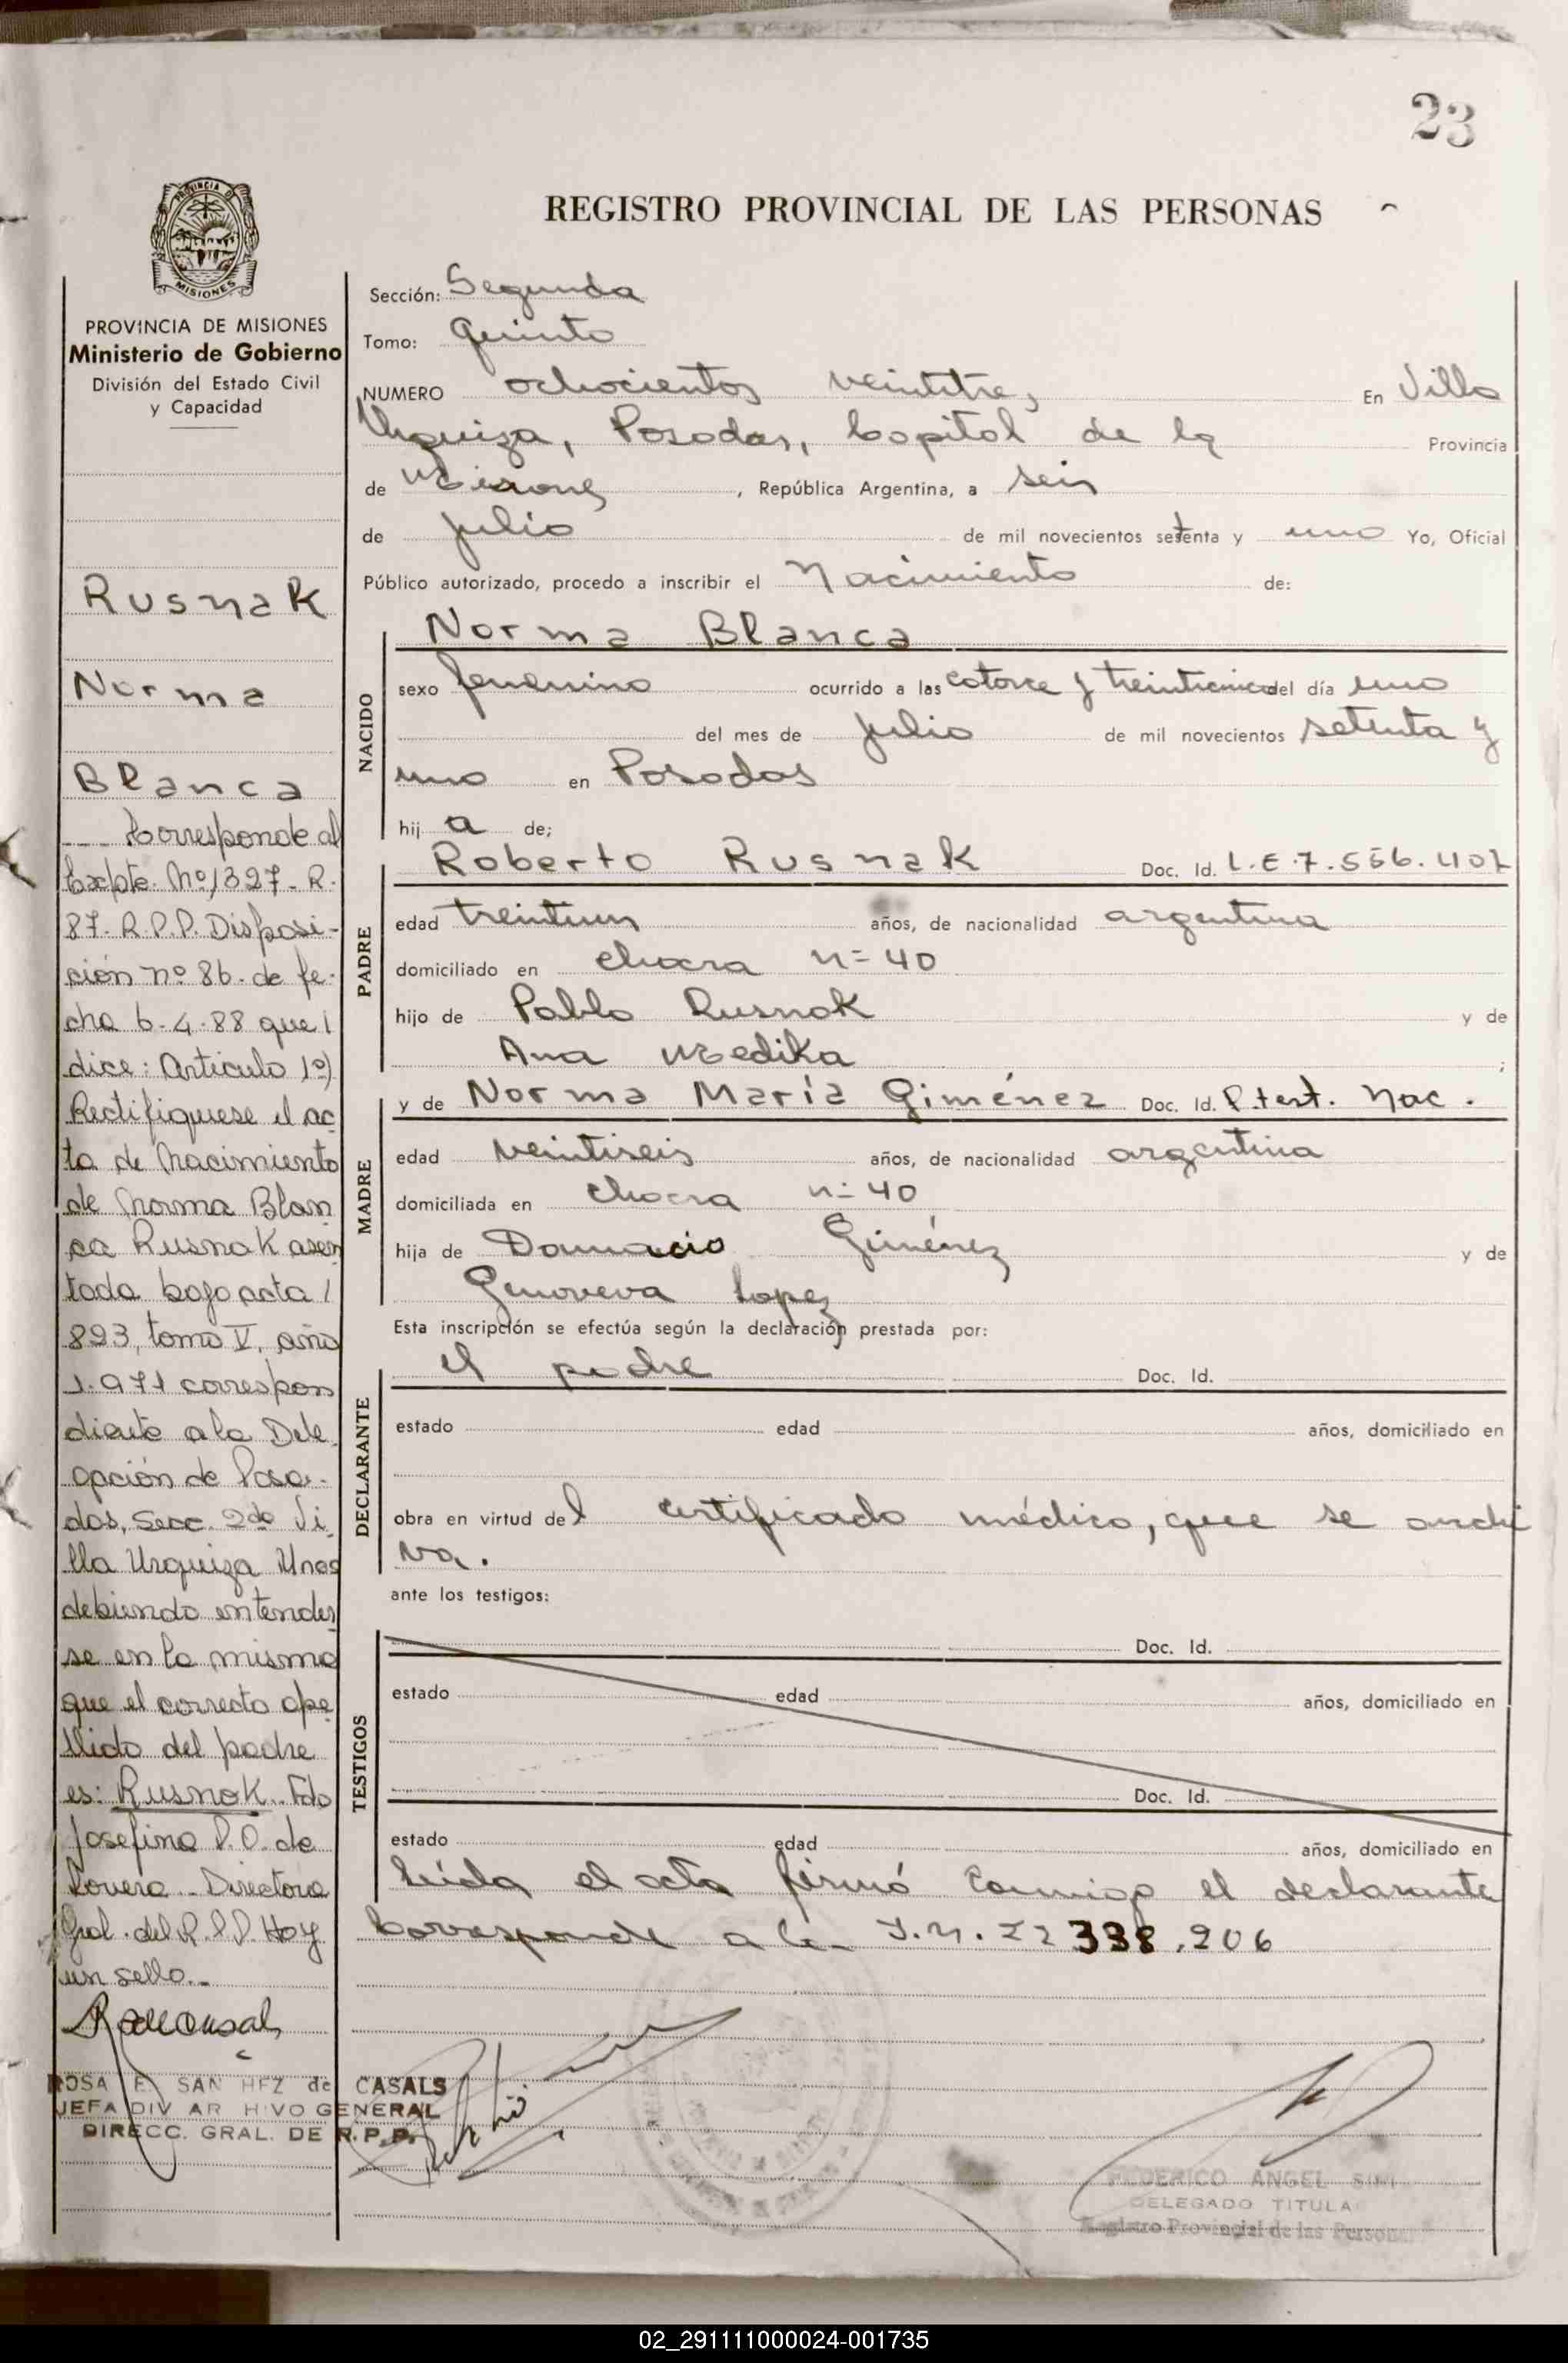 23
REGISTRO PROVINCIAL DE LAS PERSONAS
PROVINCIA DE MISIONES
MISIONES
PROVINCIA DE MISIONES
Ministerio de Gobierno
División del Estado Civil
y Capacidad
Rusnak
Norma
Blanca
Corresponde al
Expte. Nº 1327-R-
87-R.P.P. Disposi-
ción nº 86- de fe-
cha 6-4-88 que /
dice: Artículo 1º)
Rectifíquese el ac
ta de Nacimiento
de Norma Blan
ca Rusnak asen
tada bajo acta /
823, tomo V, año
1.971 correspon
diente a la Dele
gación de Posa-
das, Secc. 2da Vi
lla Urquiza Mnes
debiendo entender
se en la misma
que el correcto ape
llido del padre
es: Rusnok. Fdo
Josefina P.O. de
Lovera - Directora
Gral. del R.P.P. Hay
un sello.-
ROSA E. SAN HEZ de CASALS
JEFA DIV AR HIVO GENERAL
DIRECC. GRAL. DE R.P.P.
Sección: Segunda
Tomo: Quinto
NUMERO ochocientos veintitres En Villa
Urquiza, Posadas, Capital de la Provincia
de Misiones, República Argentina, a seis
de julio de mil novecientos setenta y uno Yo, Oficial
Público autorizado, procedo a inscribir el Nacimiento de:
NACIDO
Norma Blanca
sexo femenino ocurrido a las catorce y treinticinco del día uno
del mes de julio de mil novecientos setenta y
uno en Posadas
hij a de;
PADRE
Roberto Rusnak Doc. Id. L.E.7.556.407
edad treintiun años, de nacionalidad argentina
domiciliado en chacra n=40
hijo de Pablo Rusnak y de
Ana Medika ;
MADRE
y de Norma María Giménez Doc. Id. P. test. Nac.
edad veintiseis años, de nacionalidad argentina
domiciliada en chacra n=40
hija de Damacio Giménez y de
Genoveva Lopez
Esta inscripción se efectúa según la declaración prestada por:
DECLARANTE
el padre Doc. Id.
estado edad años, domiciliado en
obra en virtud del certificado médico, que se archi
va.
ante los testigos:
TESTIGOS
Doc. Id.
estado edad años, domiciliado en
Doc. Id.
estado edad años, domiciliado en
Leída el acta firmó conmigo el declarante
Corresponde a la I.N. 22 338.206
FEDERICO ANGEL
DELEGADO TITULA
Registro Provincial de las Person
02_291111000024-001735